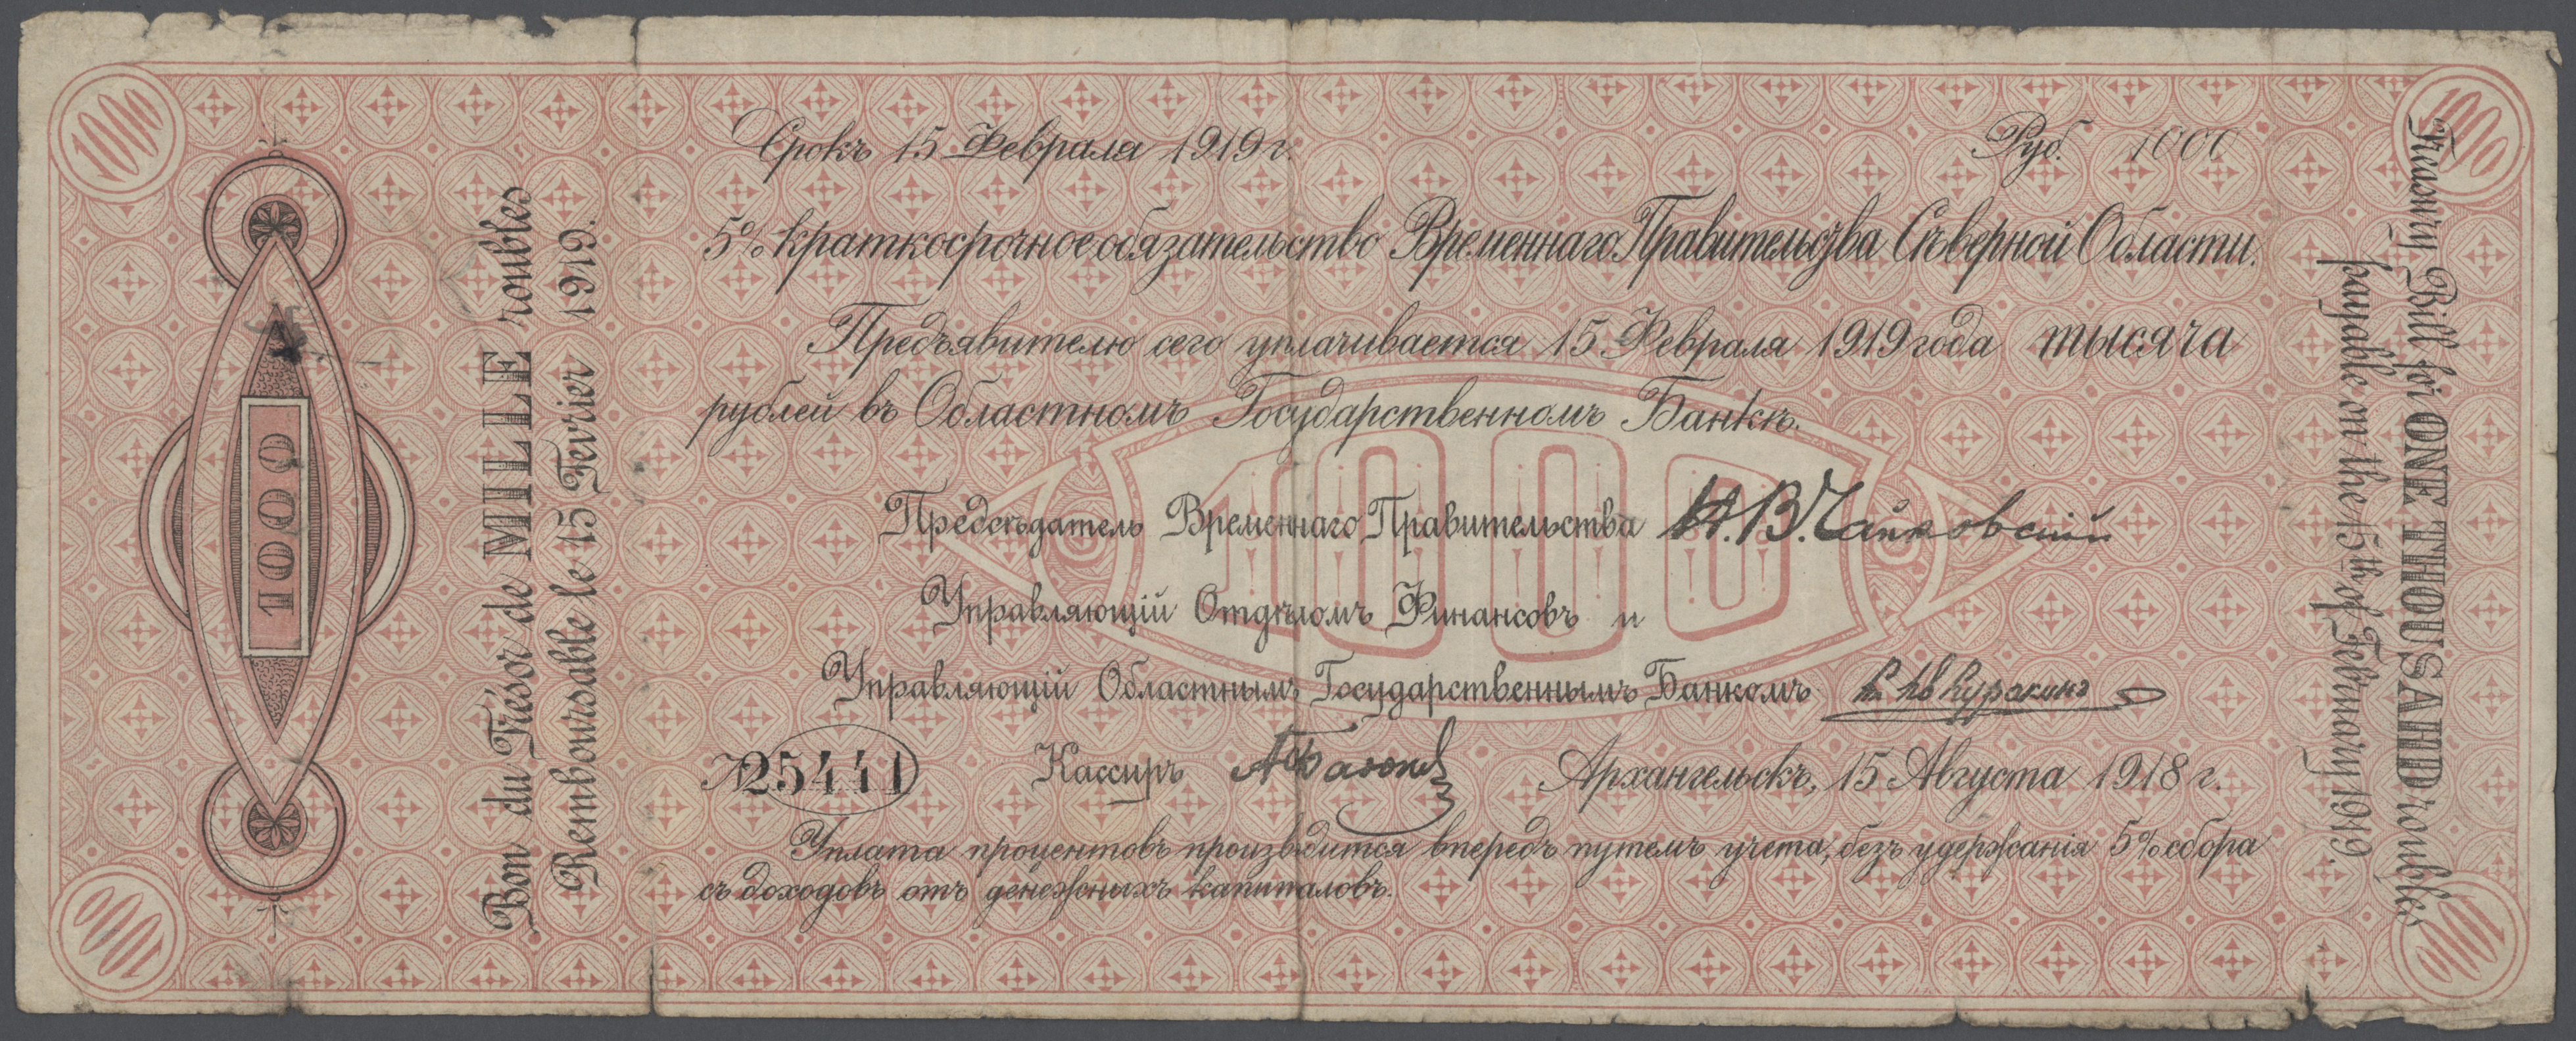 1000
1000
Срокъ 15 Февраля 1919 г.
Руб. 1000
5% краткосрочное обязательство Временнаго Правительства Сѣверной Области.
Предъявителю сего уплачивается 15 Февраля 1919 года тысяча
рублей въ Областномъ Государственномъ Банкѣ.
1000
Предсѣдатель Временнаго Правительства Н.В.Чайковскій
Управляющій Отдѣломъ Финансовъ и
Управляющій Областнымъ Государственнымъ Банкомъ
№ 25441
Кассиръ
Архангельскъ, 15 Августа 1918 г.
Уплата процентовъ производится впередъ путемъ учета, безъ удержанія 5% сбора
съ доходовъ отъ денежныхъ капиталовъ.
1000
Bon du Trésor de MILLE roubles
Remboursable le 15 Fevrier 1919.
Treasury Bill for ONE THOUSAND roubles
payable on the 15th of February 1919.
1000
1000